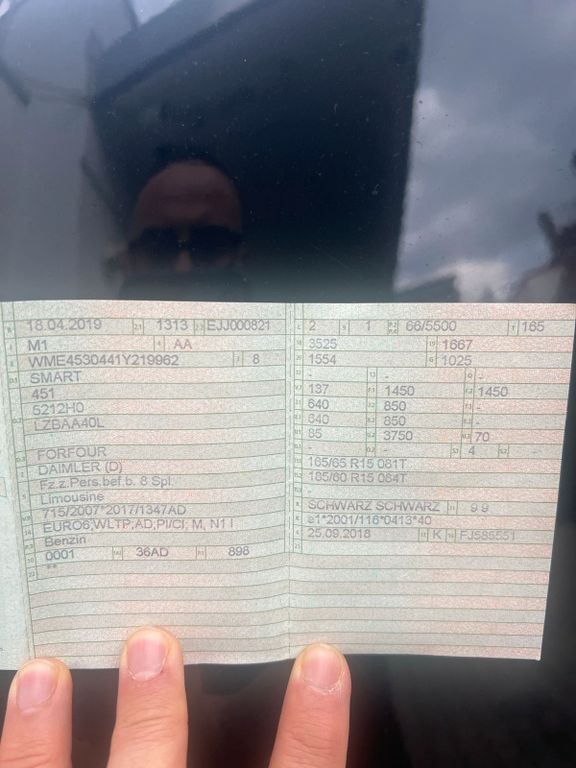 18.04.2019 1313 EJJ000821
M1 AA
WME4530441Y219962 8
SMART
451
5212H0
LZBAA40L
FORFOUR
DAIMLER (D)
Fz.z.Pers.bef.b. 8 Spl.
Limousine
715/2007*2017/1347AD
EURO6;WLTP,AD,PI/CI, M, N1 I
Benzin
0001 36AD 898
**
2 1 66/5500 165
3525 1667
1554 1025
- - -
137 1450 1450
640 850 -
640 850 -
85 3750 70
- - 4 -
165/65 R15 081T
185/60 R15 084T
-
SCHWARZ SCHWARZ 9 9
e1*2001/116*0413*40
25.09.2018 K FJ585551